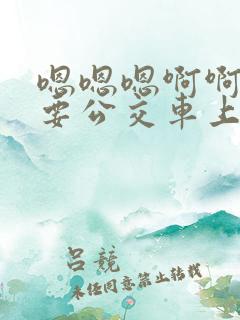 嗯嗯嗯啊啊
要公交車上
呂競
未经同意禁止转载